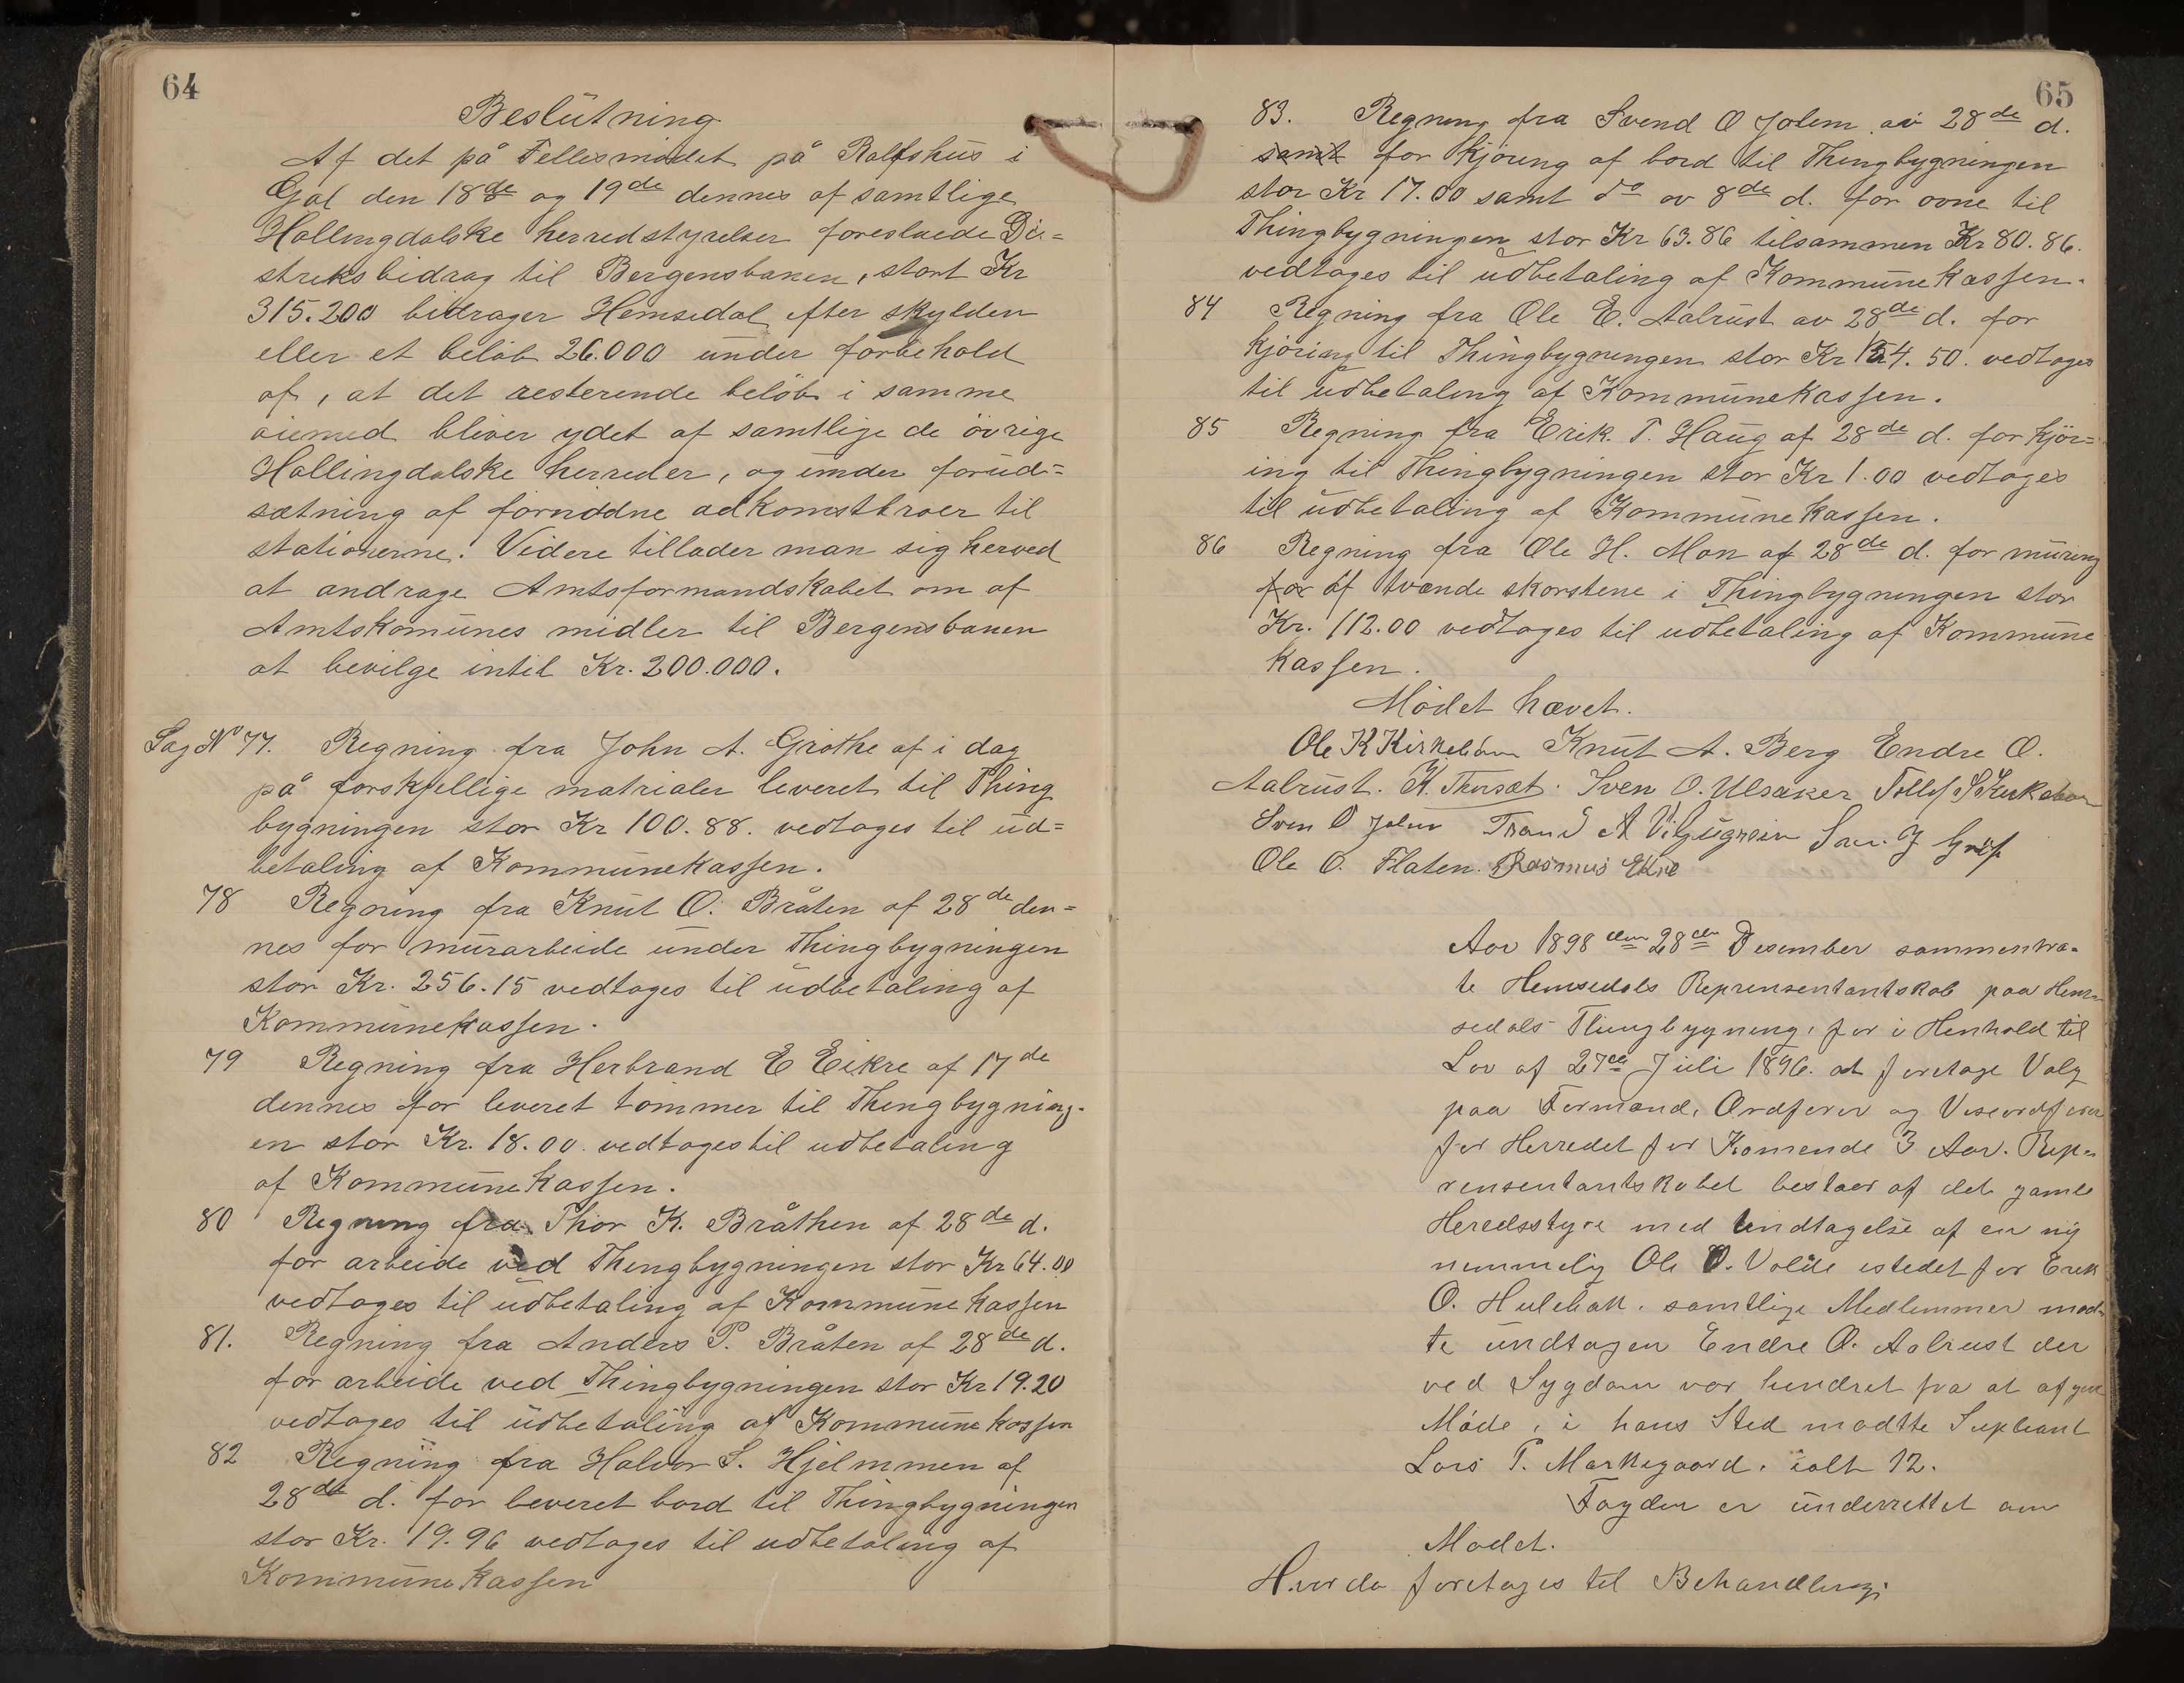 64
Beslutning
Af det på Fellesmødet på Rolfshus i
Gol den 18de og 19de dennes af samtlige
Hallingdalske herredstyrelser foreslaede Di-
striksbidrag til Bergensbanen, stort Kr
315.200 bidrager Hemsedal efter skylden
eller et beløb 26.000 under forbehold
af, at det resterende beløb i samme
øiemed bliver ydet af samtlige de øvrige
Hallingdalske herreder, og under forud=
sætning af fornødne adkomstbroer til
stationerne. Videre tillader man sig herved
at andrage Amtsformandskabet om af
Amtskomunes midler til Bergensbanen
at bevilge intil Kr. 200.000.
Sag No 77. Regning fra John A. Grøthe af i dag
på forskjellige matrialer leveret til Thing
bygningen stor Kr 100.88. vedtages til ud=
betaling af Kommunekassen.
78 Regning fra Knut O. Bråten af 28de den=
nes for murarbeide under Thingbygningen
stor Kr. 256.15 vedtages til udbetaling af
Kommunekassen.
79 Regning fra Herbrand E Eikre af 17de
dennes for leveret tømmer til Thingbygning-
en stor Kr. 18.00 vedtages til udbetaling
af Kommunekassen.
80 Regning fra Thor K. Bråthen af 28de d.
for arbeide ved Thingbygningen stor Kr 64.00
vedtages til udbetaling af Kommunekassen
81. Regning fra Anders P. Bråten af 28de d.
for arbeide ved Thingbygningen stor Kr 19.20
vedtages til udbetaling af Kommunekassen
82 Regning fra Halvor S. Hjelmmen af
28de d. for leveret bord til Thingbygningen
stor Kr. 19.96 vedtages til udbetaling af
Kommunekassen
65
83. Regning fra Svend O Jolem av 28de d.
samt for kjøring af bord til Thingbygningen
stor Kr 17.00 samt do av 8de d. for ovne til
Thingbygningen stor Kr 63.86 tilsammen Kr 80.86.
vedtages til udbetaling af Kommunekassen.
84 Regning fra Ole E. Aalrust av 28de d. for
kjøring til Thingbygningen stor Kr 54.50. vedtages
til udbetaling af Kommunekassen.
85 Regning fra Erik. T. Haug af 28de d. for kjør=
ing til Thingbygningen stor Kr 1.00 vedtages
til udbetaling af Kommunekassen.
86 Regning fra Ole H. Mon af 28de d. for muring
for af tvende skorstene i Thingbygningen stor
Kr. 112.00 vedtages til udbetaling af Kommune
kassen.
Mødet hævet.
Ole K Kirkebøen Knut A. Berg Endre O.
Aalrust. K. Thorset. Sven O. Ulsaker Tollef S Kirkebøen
Sven O Jolen Trond A
Ole O. Flaten. Rasmus Ekre
Aar 1898 den 28de Desember sammentra-
te Hemsedals Reprensentantskab paa Hem-
sedals Thingbygning, for i Henhold til
Lov af 27de Juli 1896. at foretage Valg
paa Formand, Ordfører og Viseordfører
for Herredet for Komende 3 Aar. Rep-
rensentantskabet bestaar af det gamle
Heredsstyre med Undtagelse af en ny
nemmelig Ole O. Volde istedet for Erik
O. Hulebak. samtlige Medlemmer mød-
te undtagen Endre O. Aalrust der
ved Sygdom var hindret fra at afgive
Møde, i hans Sted mødtte Supleant
Lars T. Markegaard. ialt 12.
Fogden er underrettet om
Mødet.
Hvorda foretages til Behandling: